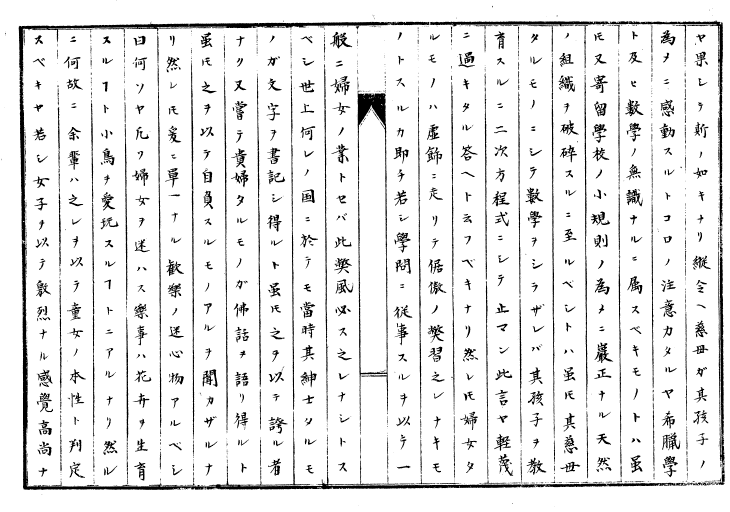 ヤ果シテ斯ノ如キナリ縦令ヘ慈母ガ其孩子ノ
為メニ感動スルトコロノ注意カタルヤ希臘学
ト及ヒ数學ノ無識ナルニ属スベキモノトハ虽
𪜈又寄留學校ノ小規則ノ為メニ嚴正ナル天然
ノ組織ヲ破碎スルニ至ルベシトハ虽𪜈其慈母
タルモノニシテ數學ヲシラザレバ其孩子ヲ教
育スルニ二次方程式ニシテ止マン此言ヤ輕蔑
ニ過キタル答ヘト云フベキナリ然レ𪜈婦女タ
ルモノハ虚飾ニ走リテ倨傲ノ弊習之レナキモ
ノトスルカ即チ若シ學問ニ從事スルヲ以テ一
般ニ婦女ノ業トセバ此弊風必ス之レナシトス
ベシ世上何レノ国ニ於テモ當時其紳士タルモ
ノガ文字ヲ書記シ得ルト虽𪜈之ヲ以テ誇ル者
ナク又嘗テ貴婦タルモノガ佛話ヲ語リ得ルト
虽𪜈之ヲ以テ自負スルモノアルヲ聞カザルナ
リ然レ𪜈爰ニ單一ナル歓樂ノ迷心物アルベシ
曰何ソヤ凡ソ婦女ヲ迷ハス樂事ハ花卉ヲ生育
スルヿト小鳥ヲ愛玩スルヿトニアルナリ然ル
ニ何故ニ余輩ハ之レヲ以テ童女ノ本性ト判定
スベキヤ若シ女子ヲ以テ敫烈ナル感覺高尚ナ